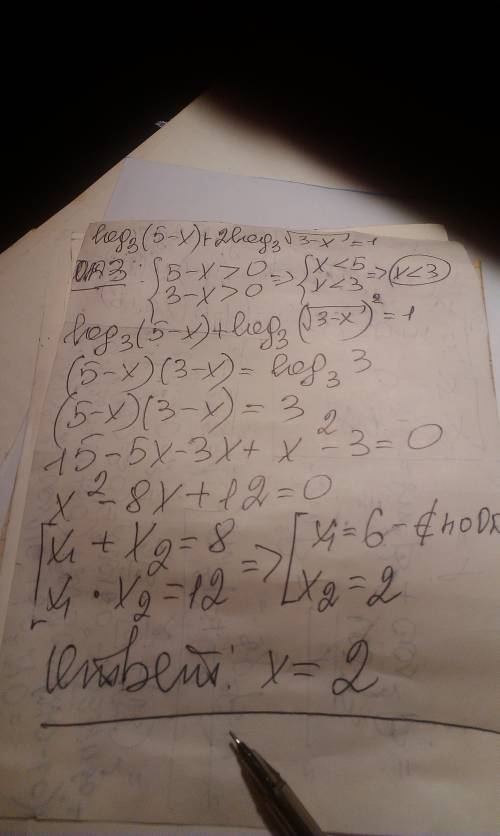 log₃(5-x)+2log₃√(3-x)=1
ОДЗ: { 5-x>0 3-x>0 => { x<5 x<3 => x<3
log₃(5-x)+log₃(√(3-x))²=1
(5-x)(3-x)=log₃3
(5-x)(3-x)=3
15-5x-3x+x²-3=0
x²-8x+12=0
[ x₁+x₂=8 x₁·x₂=12 => [ x₁=6-∉ по ОДЗ x₂=2
Ответ: x=2